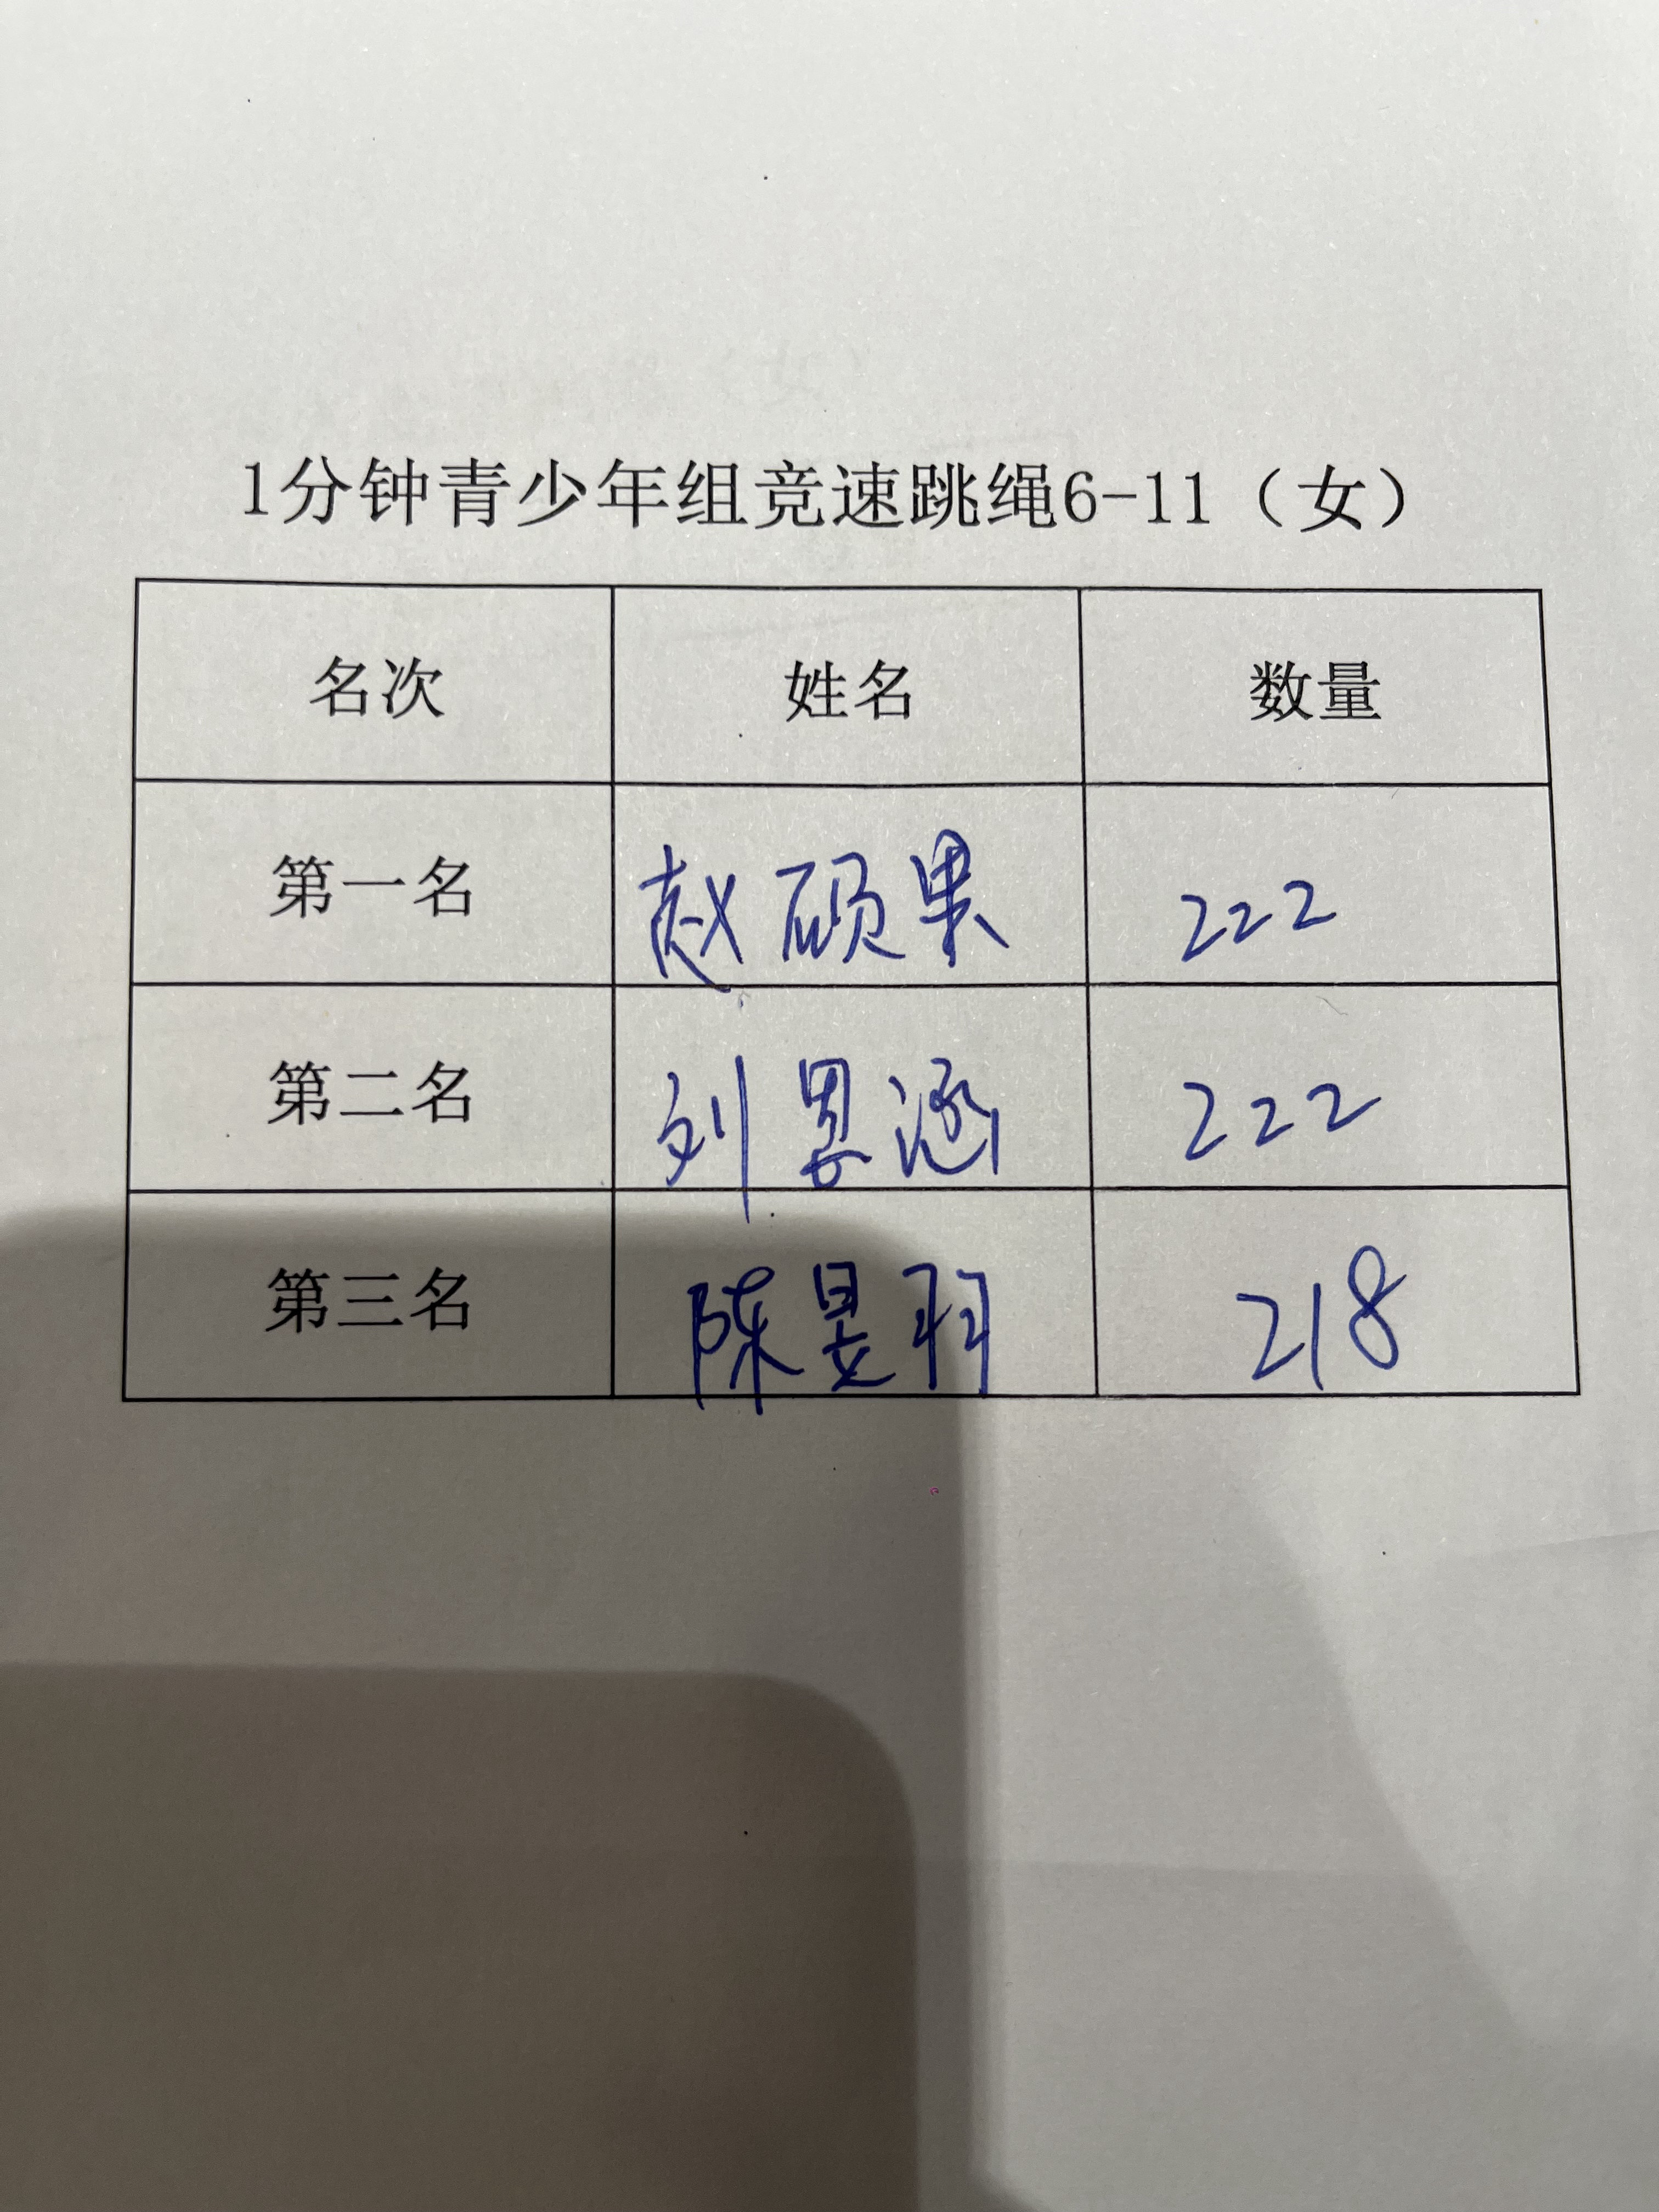 1分钟青少年组竞速跳绳6-11（女）
名次 姓名 数量
第一名 赵硕果 222
第二名 刘恩涵 222
第三名 陈昱羽 218